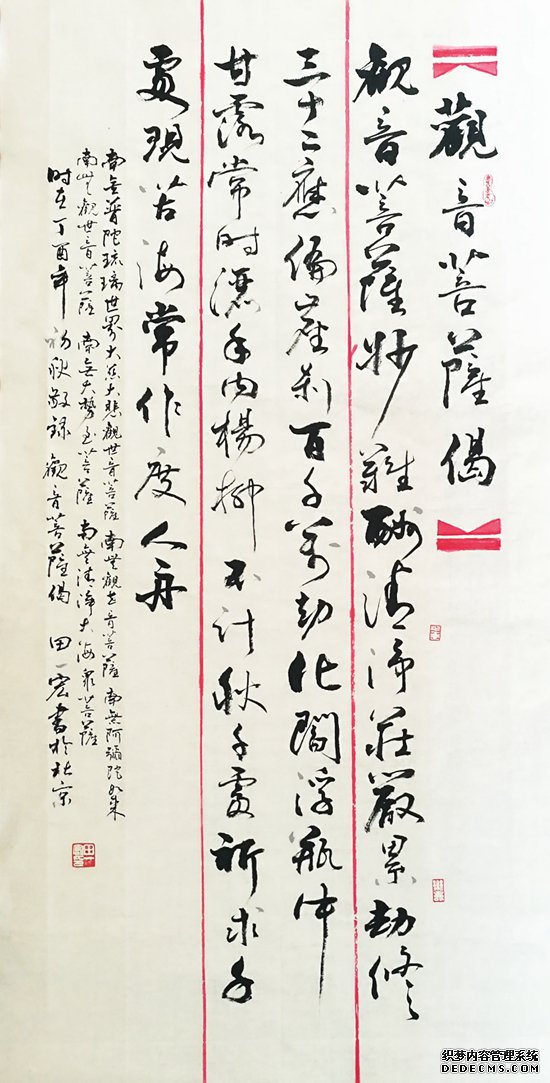 觀音菩薩偈
觀音菩薩妙難酬清淨莊嚴累劫修
三十二應徧塵刹百千萬劫化閻浮瓶中
甘露常時灑手內楊柳不計秋千處祈求千
處現苦海常作度人舟
南無普陀琉璃世界大慈大悲觀世音菩薩南無觀世音菩薩南無阿彌陀如來
南無觀世音菩薩 南無大勢至菩薩 南無清淨大海眾菩薩
時在丁酉年初秋敬録觀音菩薩偈 田一宏書於北京
织梦内容管理系统
DEDECMS.COM